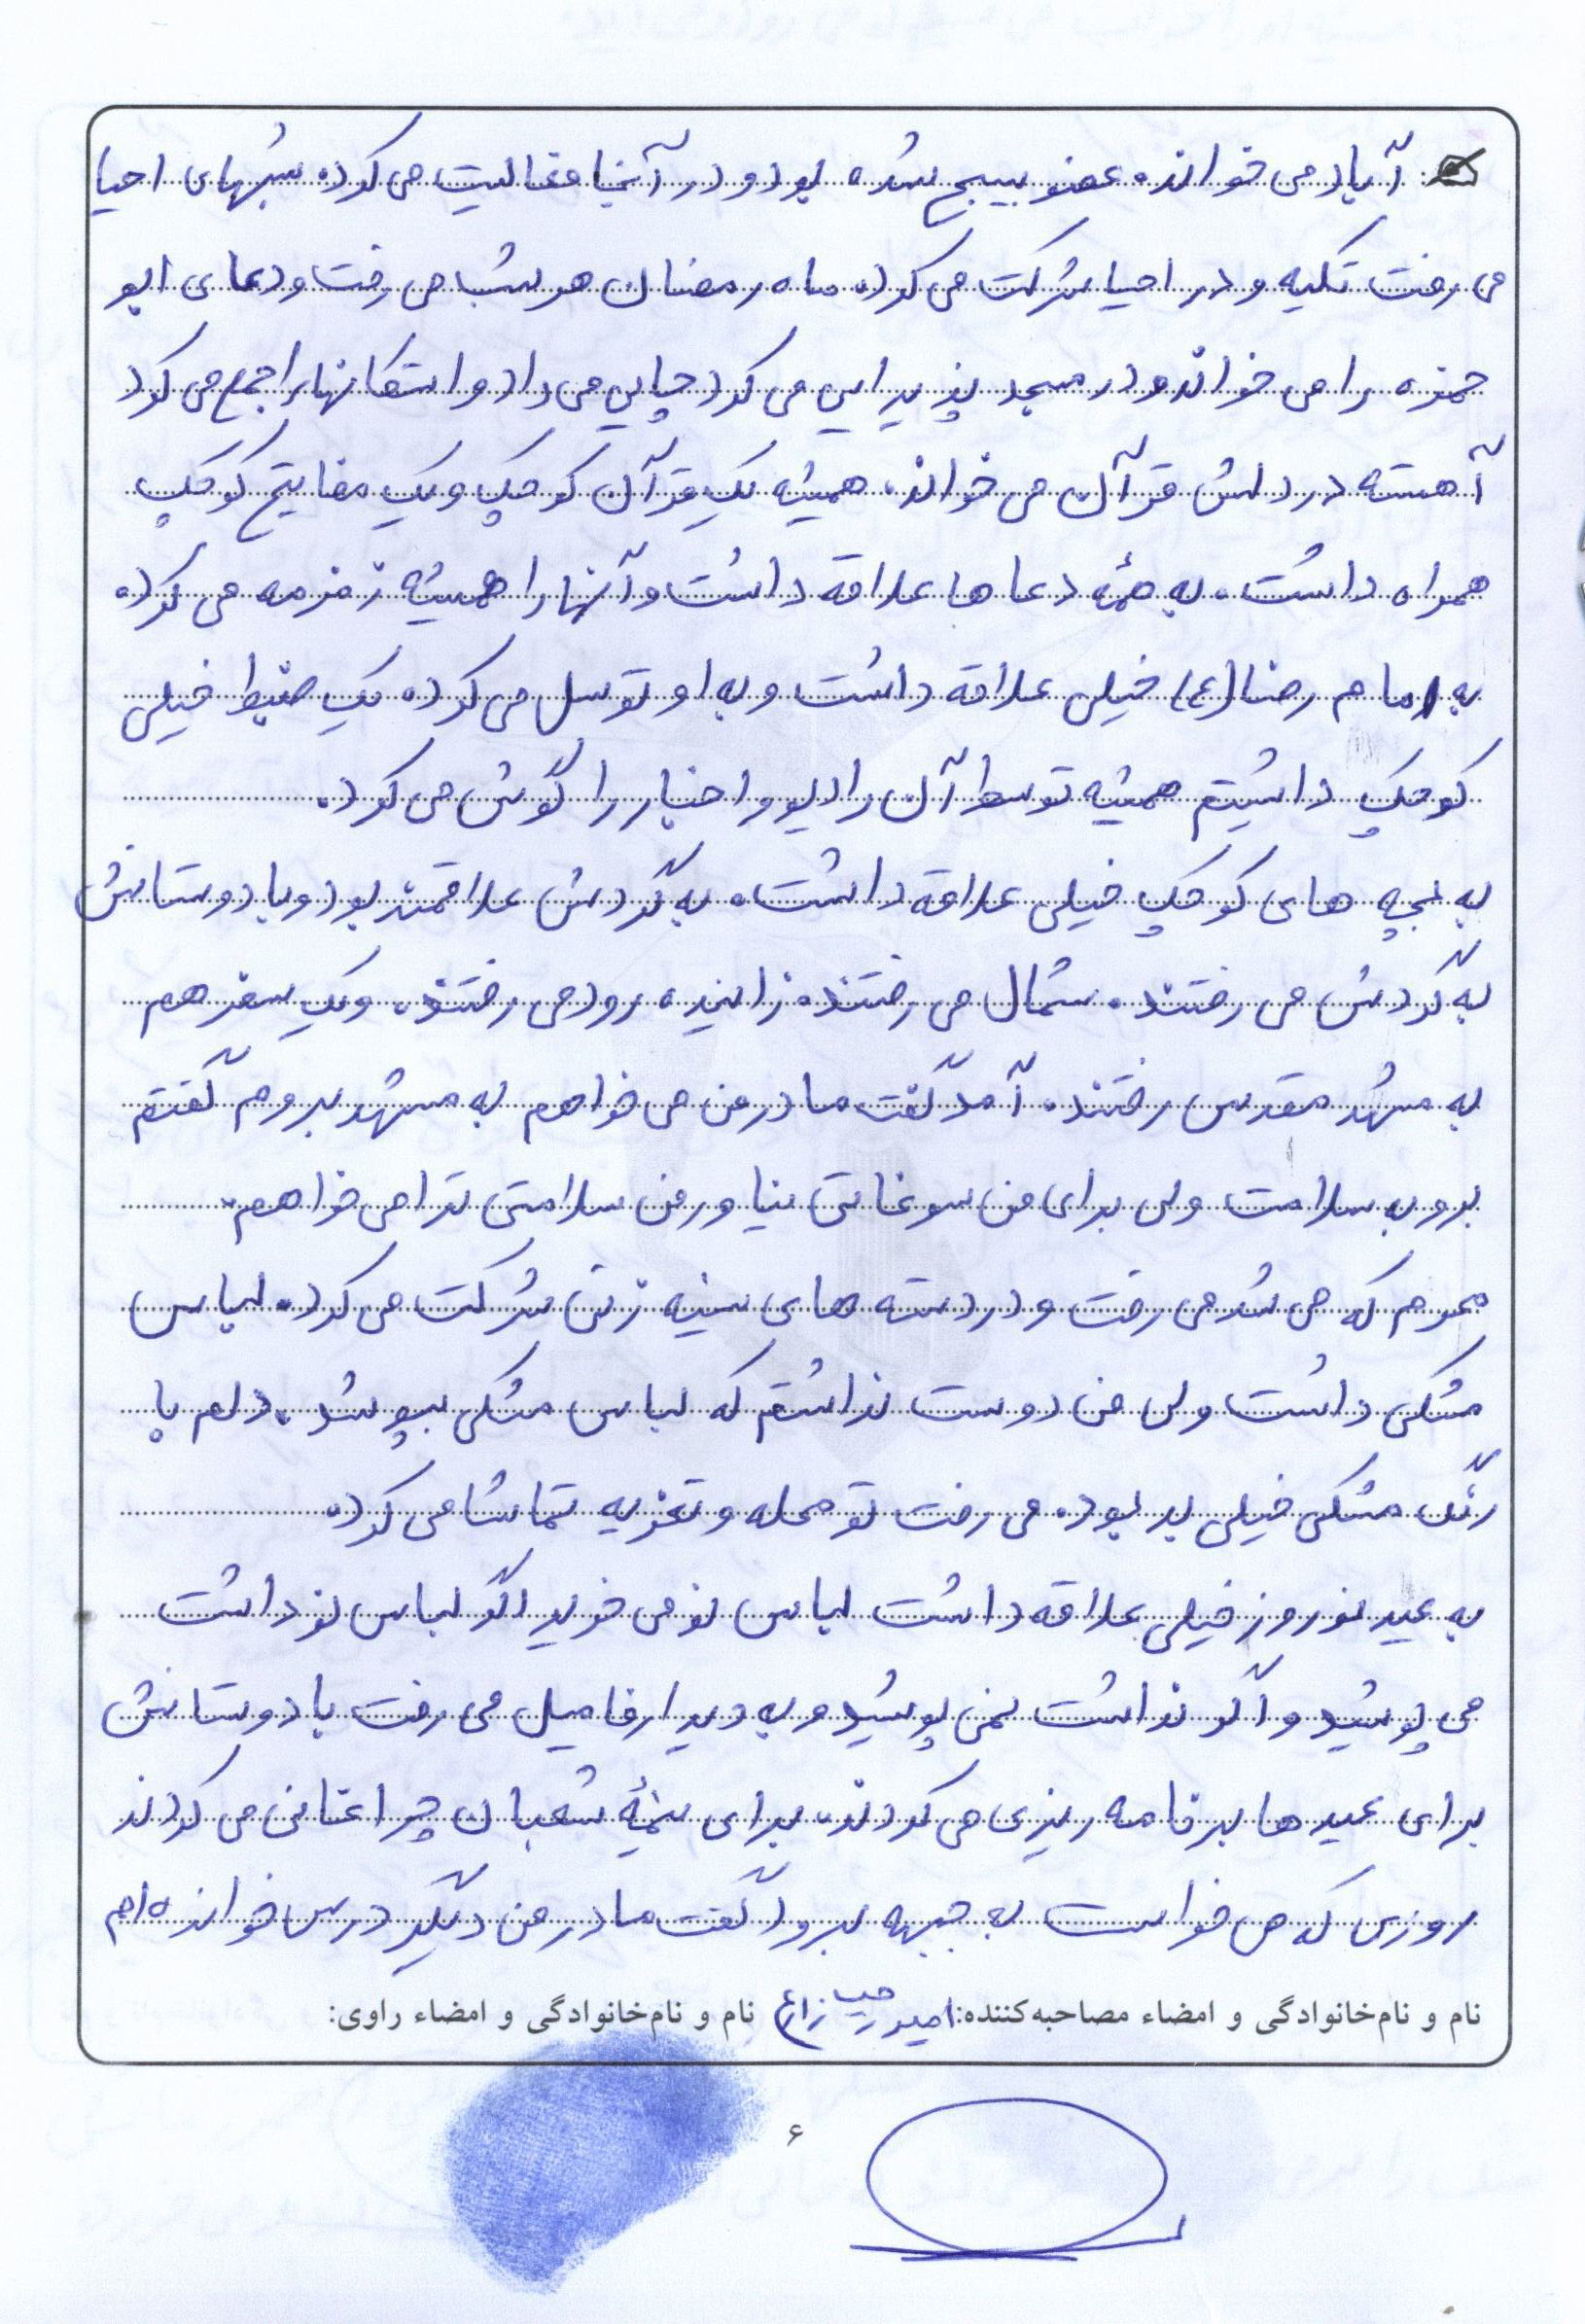 آباد می خواند. عضو بسیج شده بود و در آنجا فعالیت می کرد. شبهای احیا
می رفت تکیه و در احیا شرکت می کرد. ماه رمضان هر شب می رفت و دعای ابو
حمزه را می خواند و در مسجد پذیرایی می کرد چایی می داد و استکانها را جمع می کرد
آهسته در دلش قرآن می خواند. همیشه یک قرآن کوچک و یک مفاتیح کوچک
همراه داشت. به همهٔ دعاها علاقه داشت و آنها را همیشه زمزمه می کرد.
به امام رضا (ع) خیلی علاقه داشت و به او توسل می کرد. یک ضبط خیلی
کوچک داشتیم همیشه توسط آن رادیو و اخبار را گوش می کرد.
به بچه های کوچک خیلی علاقه داشت. به گردش علاقمند بود و با دوستانش
به گردش می رفتند. شمال می رفتند. زاینده رود می رفتند. و یک سفر هم
به مشهد مقدس رفتند. آمد گفت مادر من می خواهم به مشهد بروم گفتم
برو به سلامت ولی برای من سوغاتی نیاور من سلامتی ترا می خواهم.
محرم که می شد می رفت و در دسته های سینه زنی شرکت می کرد. لباس
مشکی داشت ولی من دوست نداشتم که لباس مشکی بپوشد. دلم با
رنگ مشکی خیلی بد بود. می رفت تو محله و تعزیه تماشا می کرد.
به عید نوروز خیلی علاقه داشت لباس نو می خرید اگر لباس نو داشت
می پوشید و اگر نداشت نمی پوشید و به دیدار فامیل می رفت با دوستانش
برای عیدها برنامه ریزی می کردند. برای نیمهٔ شعبان چراغانی می کردند
روزی که می خواست به جبهه برود گفت مادر من دیگر درس خوانده ام
نام و نام‌خانوادگی و امضاء مصاحبه‌کننده: امیر زارع نام و نام‌خانوادگی و امضاء راوی:
۶